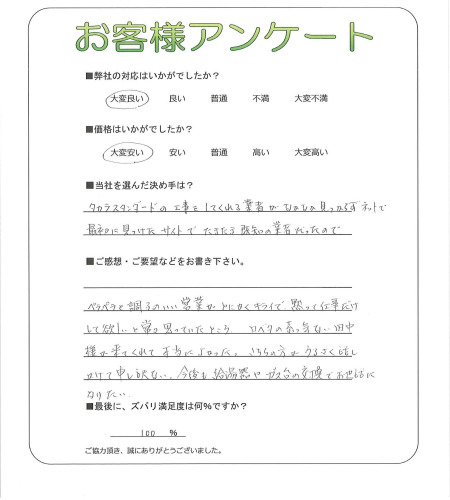 お客様アンケート
■弊社の対応はいかがでしたか？
大変良い 良い 普通 不満 大変不満
■価格はいかがでしたか？
大変安い 安い 普通 高い 大変高い
■当社を選んだ決め手は？
タカラスタンダードの工事をしてくれる業者がなかなか見つからず ネットで
最初に見つけた サイトで たまたま 既知の業者だったので
■ご感想・ご要望などをお書き下さい。
ペラペラと調子のいい営業がとにかくキライで、黙って仕事だけ
して欲しいと常々思っていたところ 口ベタの素っ気ない田中
様が来てくれて本当によかった。こちらの方がうるさく話し
かけて申し訳ない。今後も給湯器やガス台の交換でお世話に
なりたい
■最後に、ズバリ満足度は何%ですか？
100 %
ご協力頂き、誠にありがとうございました。